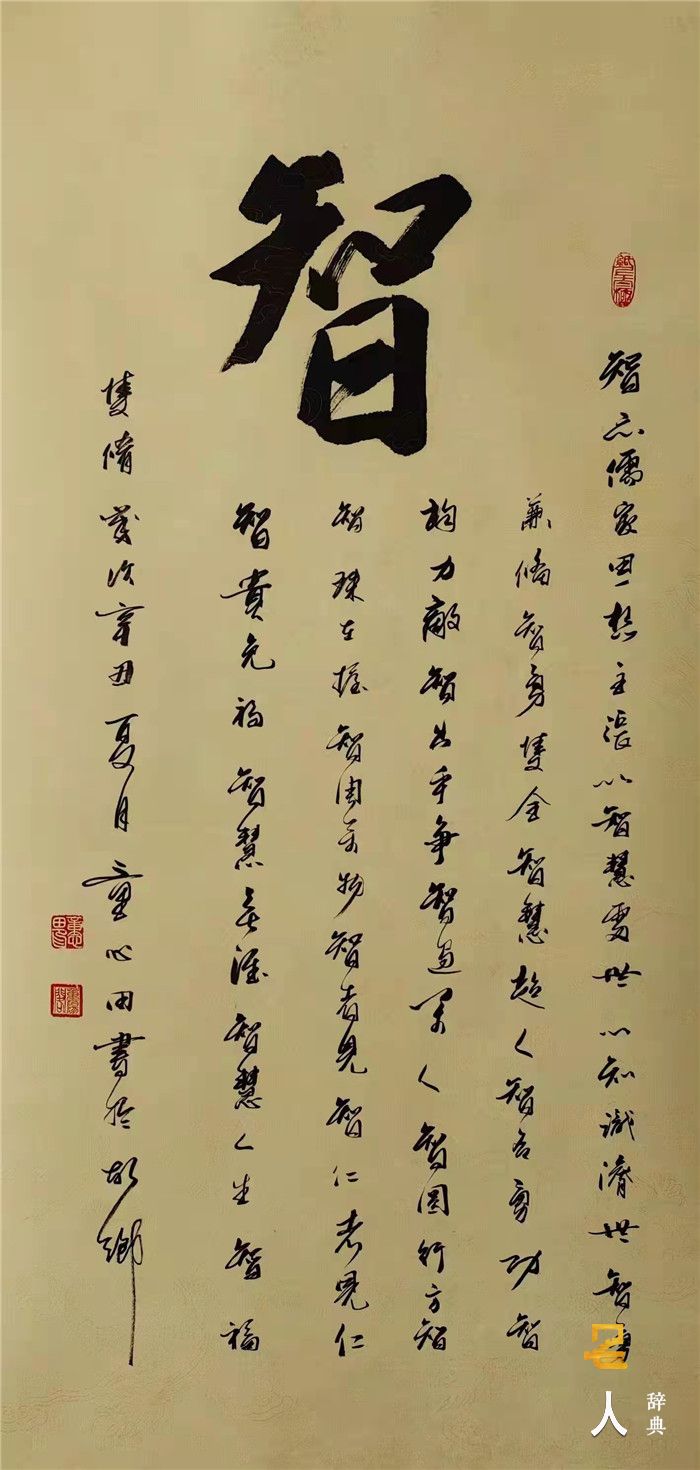 智
智亦儒家思想主張以智慧處世以知識濟世智勇
兼脩智勇雙全智慧超人智名勇功智
均力敵智出乎爭智過萬人智圓行方智
智珠在握智周萬物智者見智仁者見仁
智貴免禍智慧無涯智慧人生智福
雙脩歲次辛丑夏月童心田書於故鄉
名人
辞典